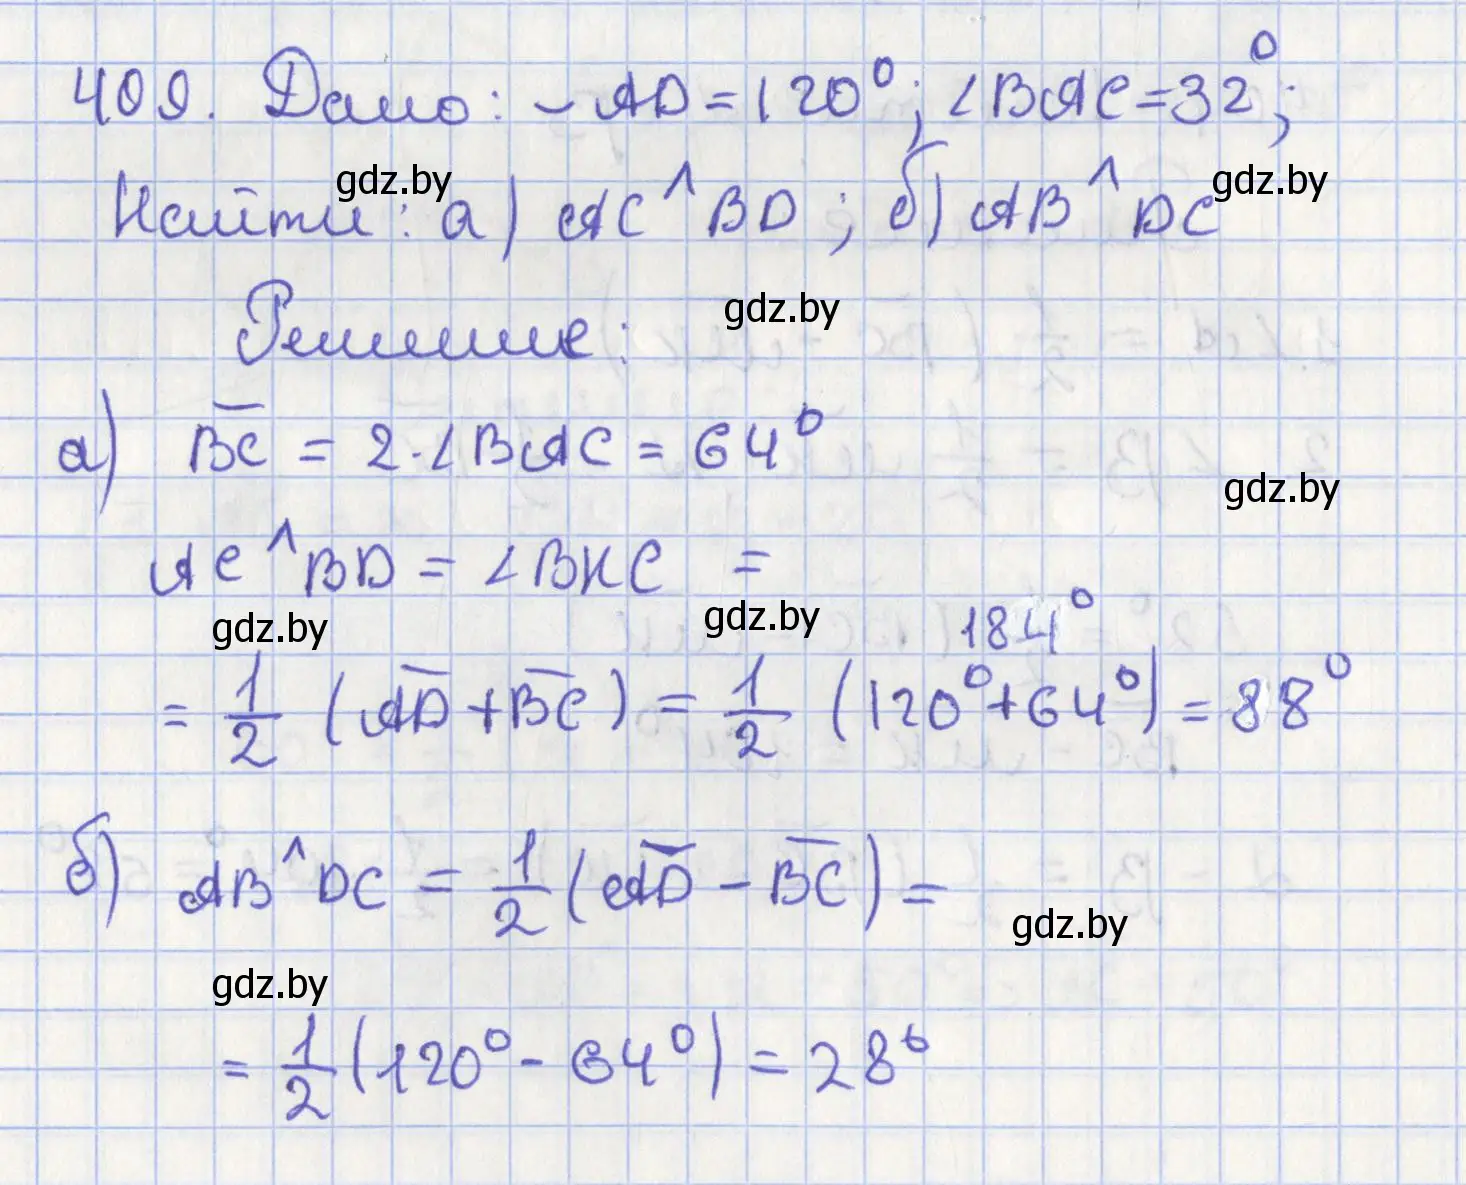 409. Дано: ⌣AD = 120°; ∠BAC = 32°;
gdz.by gdz.by
Найти: а) AC^BD; б) AB^DC
gdz.by
Решение:
а) BC = 2·∠BAC = 64°
gdz.by
AC^BD = ∠BKC =
gdz.by gdz.by
184°
= 1/2 (AD + BC) = 1/2 (120° + 64°) = 88°
б) AB^DC = 1/2 (AD - BC) =
gdz.by
gdz.by
= 1/2 (120° - 64°) = 28°